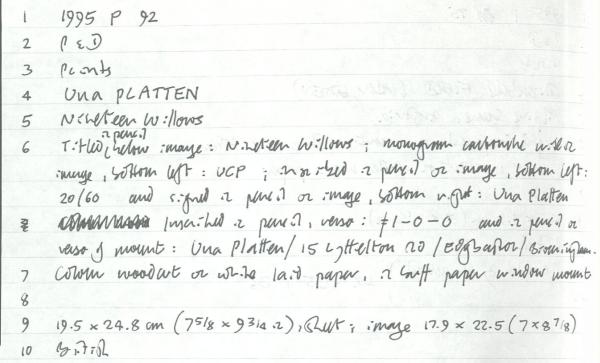 1 1995 P 92
2 P & D
3 Prints
4 Una PLATTEN
5 Nineteen Willows
in pencil
6 Titled, below image: Nineteen Willows; monogram cartouche within
image, bottom left: UCP; inscribed in pencil on image, bottom left:
20/60 and signed in pencil on image, bottom right: Una Platten
Inscribed in pencil, verso: £1-0-0 and in pencil on
verso of mount: Una Platten/ 15 Lyttelton Rd /Edgbaston/Birmingham.
7 Colour woodcut on white laid paper, in buff paper window mount
8
9 19.5 x 24.8 cm (7 5/8 x 9 3/4 in), sheet; image 17.9 x 22.5 (7 x 8 7/8)
10 British